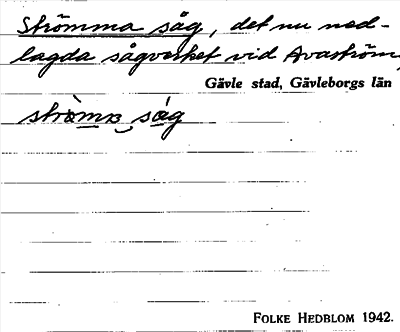 Strömma såg, det nu ned-
lagda sågverket vid Avaström,
Gävle stad, Gävleborgs län
såg
FOLKE HEDBLOM 1942.